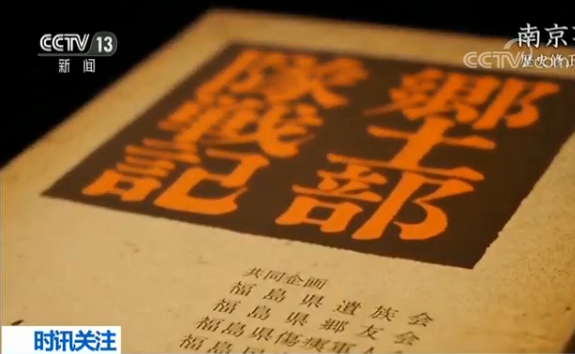 CCTV 13
新闻
南京
CCTV.com
历史修正
郷土部
隊戦記
共同企画
福島県遺族会
福島県郷友会
福島県傷痍軍人
福島
时讯关注